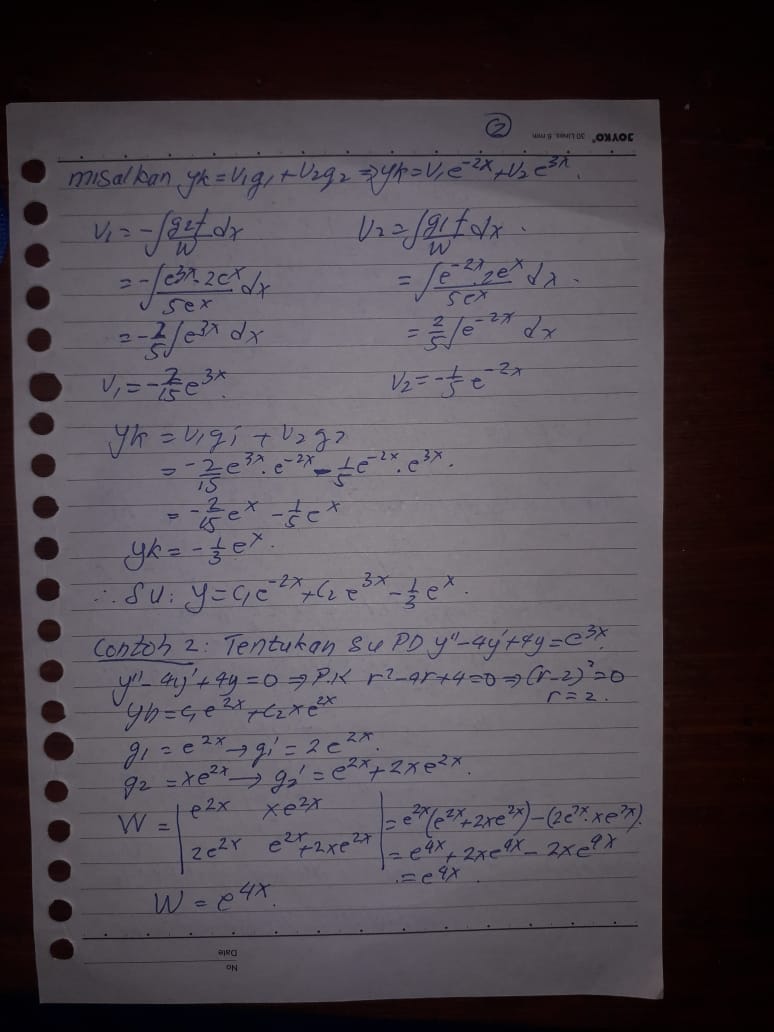 ②
JOYKO® 30 Lines, 6 mm
misalkan yk = V₁g₁ + V₂g₂ ⇒ yk = V₁e⁻²ˣ + V₂e³ˣ.
V₁ = -∫ g₂f/W dx V₂ = ∫ g₁f/W dx.
= -∫ e³ˣ·2eˣ/5eˣ dx = ∫ e⁻²ˣ·2eˣ/5eˣ dx.
= -2/5 ∫ e³ˣ dx = 2/5 ∫ e⁻²ˣ dx
V₁ = -2/15 e³ˣ. V₂ = -1/5 e⁻²ˣ
yk = V₁g₁ + V₂g₂
= -2/15 e³ˣ·e⁻²ˣ - 1/5 e⁻²ˣ·e³ˣ.
= -2/15 eˣ - 1/5 eˣ
yk = -1/3 eˣ.
∴ SU: y = C₁e⁻²ˣ + C₂e³ˣ - 1/3 eˣ.
Contoh 2: Tentukan SU PD y'' - 4y' + 4y = e³ˣ.
y'' - 4y' + 4y = 0 ⇒ P.K r² - 4r + 4 = 0 ⇒ (r-2)² = 0
r = 2.
yh = C₁e²ˣ + C₂xe²ˣ
g₁ = e²ˣ → g₁' = 2e²ˣ.
g₂ = xe²ˣ → g₂' = e²ˣ + 2xe²ˣ.
W = | e²ˣ xe²ˣ | = e²ˣ(e²ˣ + 2xe²ˣ) - (2e²ˣ·xe²ˣ).
| 2e²ˣ e²ˣ + 2xe²ˣ | = e⁴ˣ + 2xe⁴ˣ - 2xe⁴ˣ
= e⁴ˣ.
W = e⁴ˣ.
No
Date